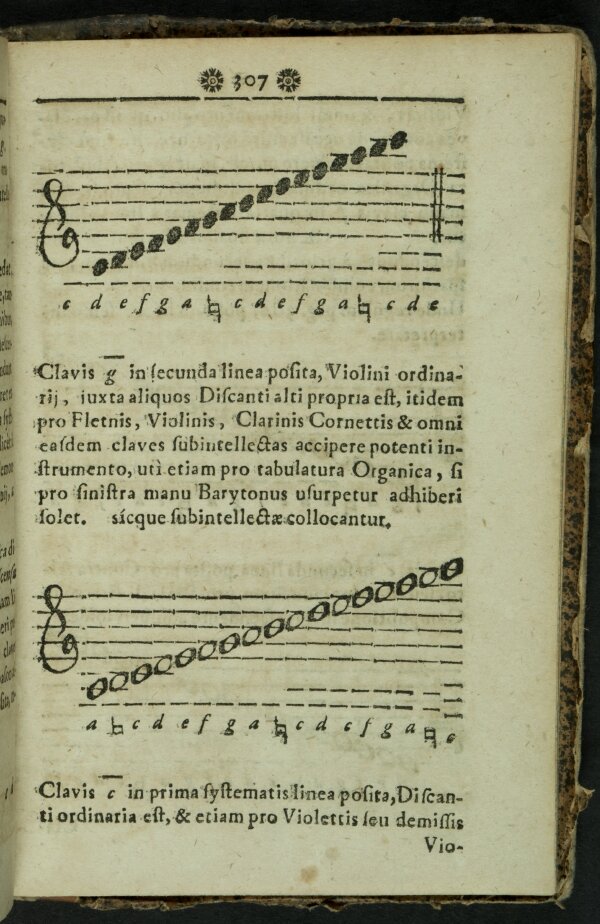 307
c d e f g a ♮ c d e f g a ♮ c d e
Clavis g̅ in ſecunda linea poſita, Violini ordina-
rij, iuxta aliquos Diſcanti alti propria eſt, itidem
pro Fletnis, Violinis, Clarinis Cornettis & omni
eaſdem claves ſubintellectas accipere potenti in-
ſtrumento, uti etiam pro tabulatura Organica, ſi
pro ſiniſtra manu Barytonus uſurpetur adhiberi
ſolet. sícque ſubintellectæ collocantur.
a ♮ c d e f g a ♮ c d e f g a ♮ c
Clavis c̅ in prima ſyſtematis linea poſita, Diſcan-
ti ordinaria eſt, & etiam pro Violettis ſeu demiſſis
Vio-